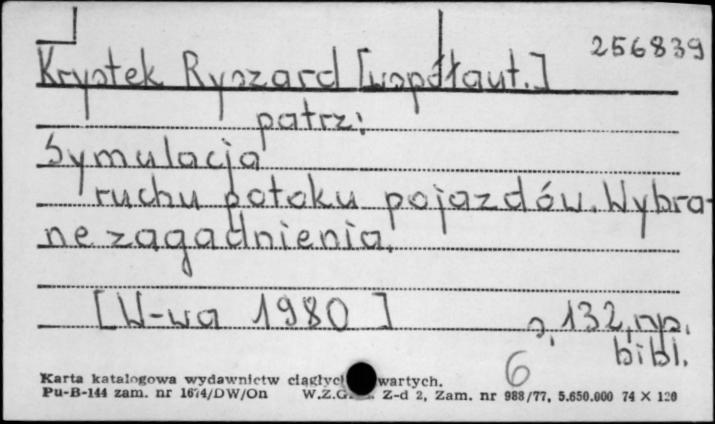 256839
Krystek Ryszard [współaut.]
patrz:
Symulacja
ruchu potoku pojazdów. Wybra-
ne zagadnienia.
[W-wa 1980]
s. 132, rys.
bibl.
6
Karta katalogowa wydawnictw wartych.
Pu-B-144 zam. nr 1674/DW/On Z-d 2, Zam. nr 988/77, 5.650.000 74 X 120